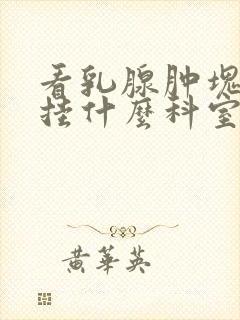 看乳腺肿块
挂什麼科室
黄華英